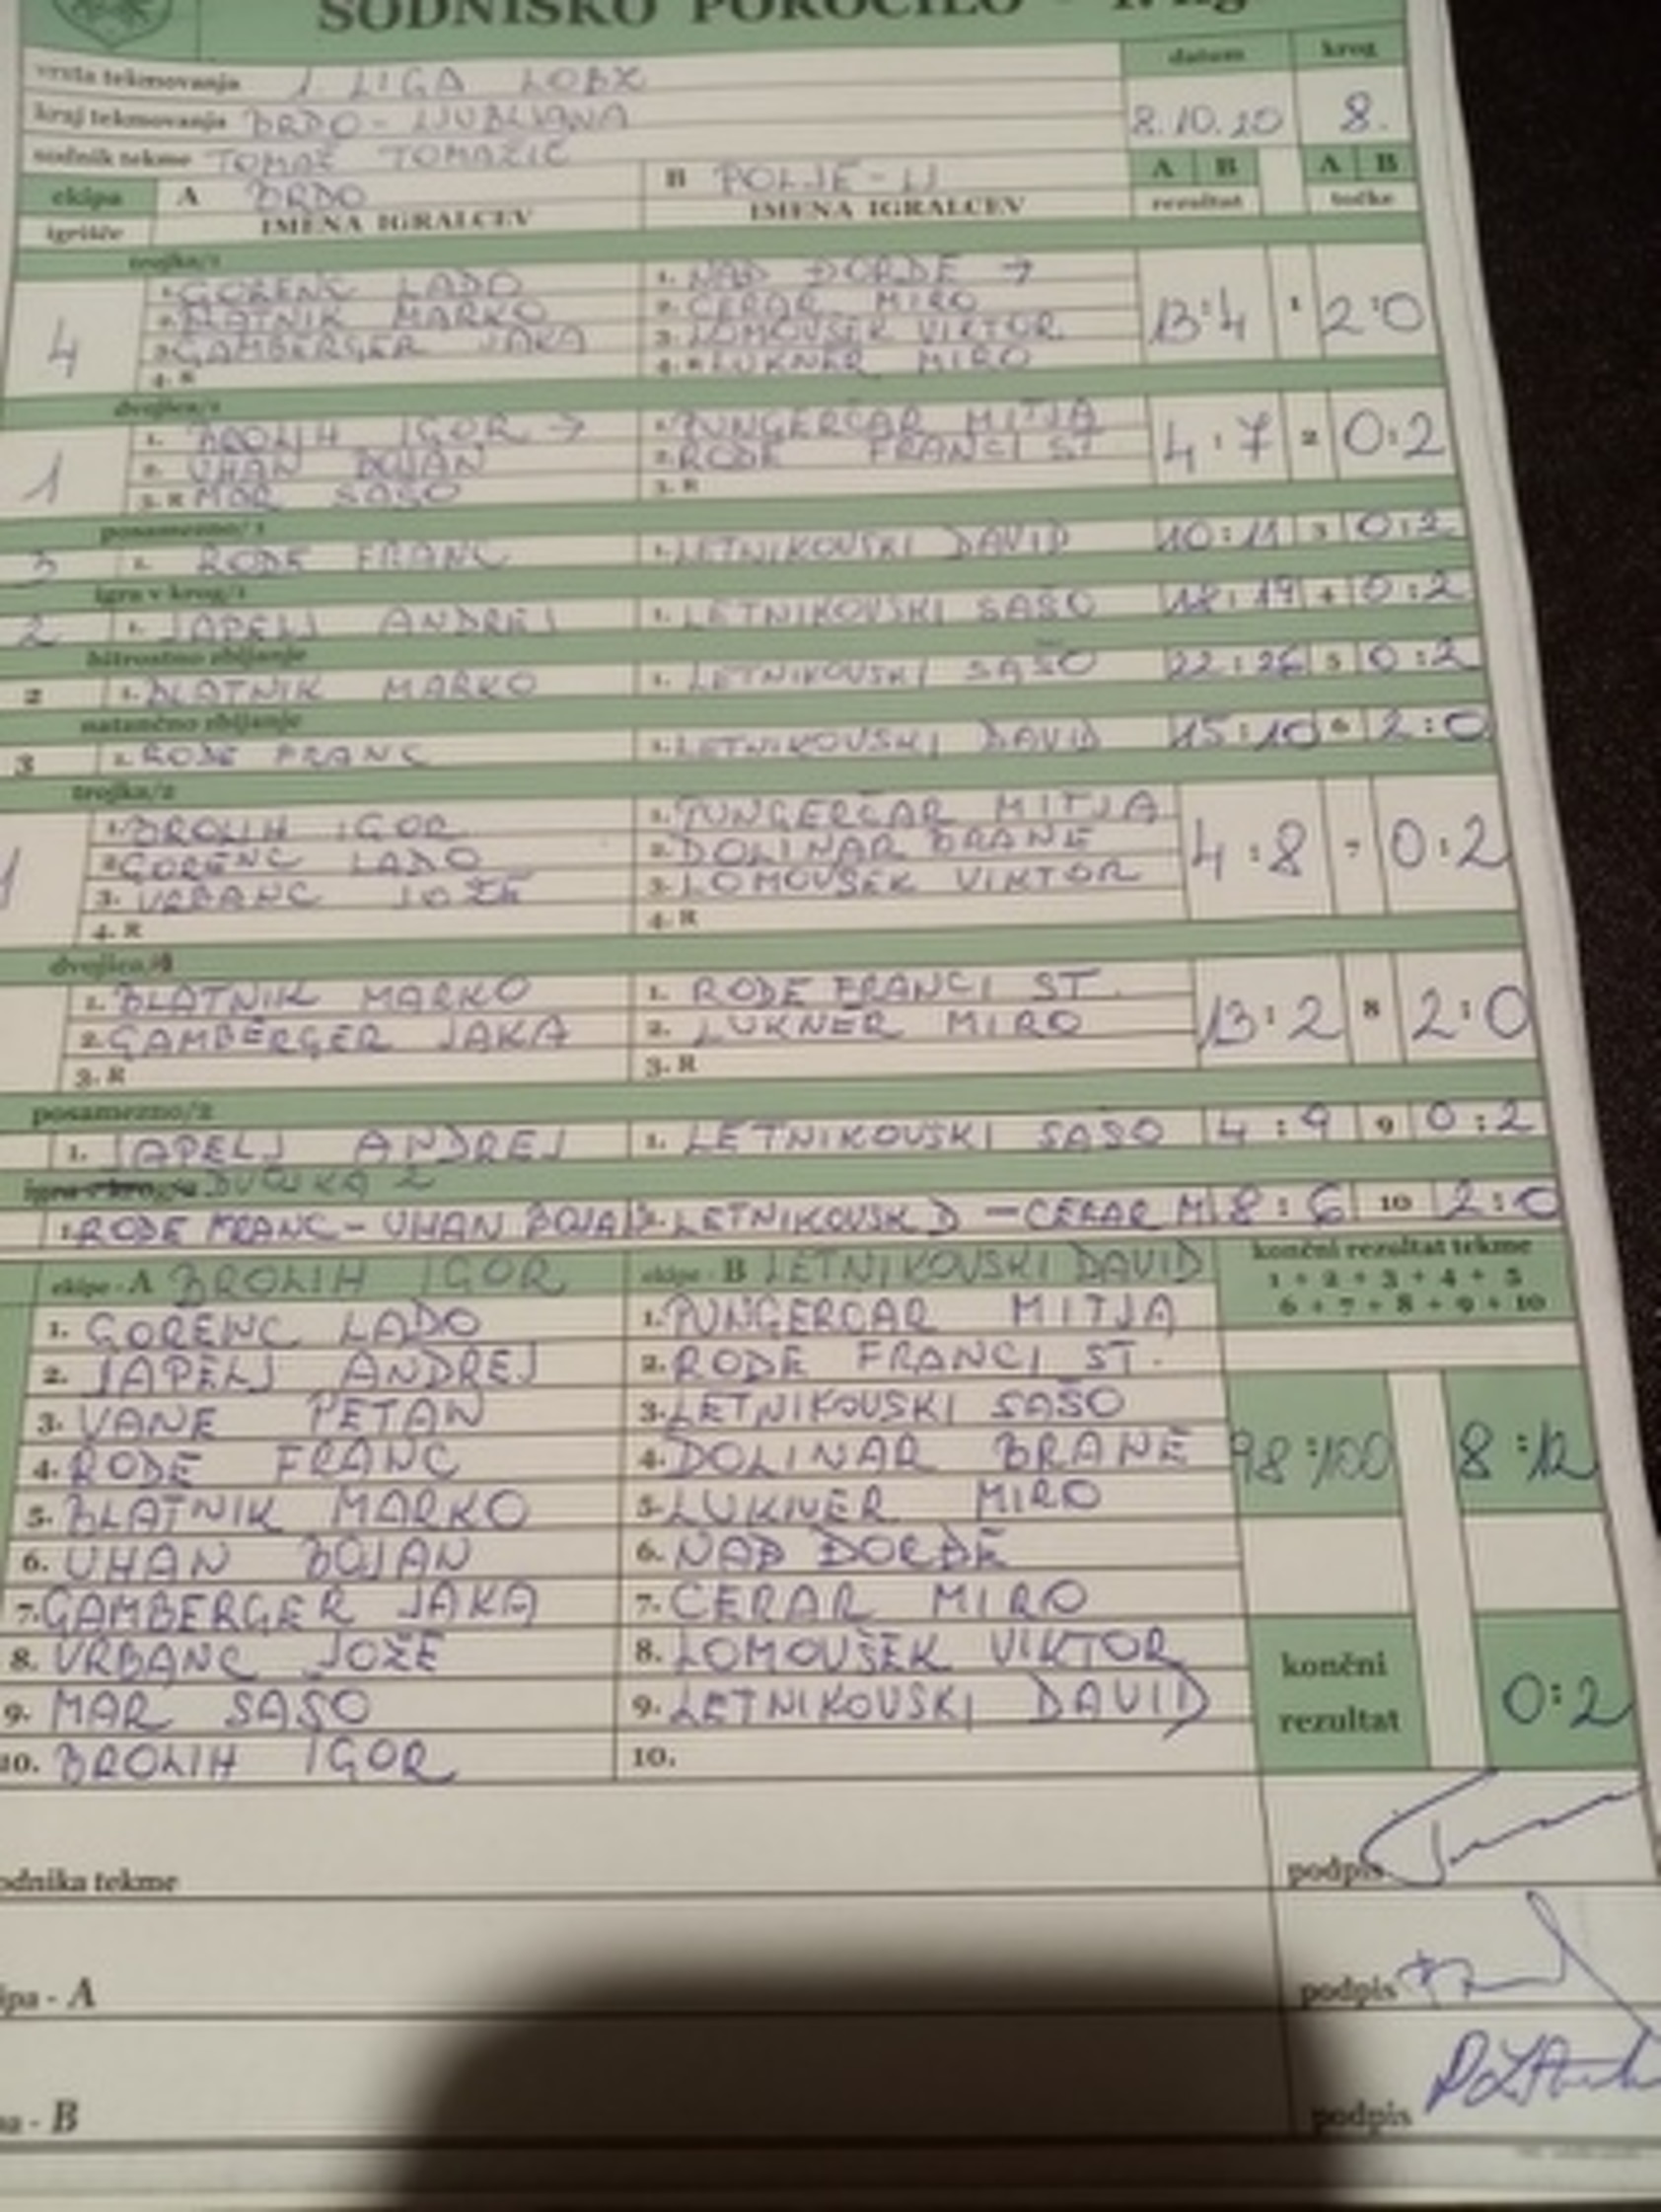 SODNIŠKO POROČILO -
vrsta tekmovanja 1. LIGA LOBZ datum krog
kraj tekmovanja BRDO - LJUBLJANA 8.10.20 8.
sodnik tekme TOMAŽ TOMAŽIČ A B A B
ekipa A BRDO B POLJE - LJ rezultat točke
igrišče IMENA IGRALCEV IMENA IGRALCEV
trojka/1
1. GORENC LADO 1. NAĐ ĐORĐE →
2. BLATNIK MARKO 2. CERAR MIRO
4 3. GAMBERGER JAKA 3. LOMOVŠEK VIKTOR 13:4 1 2:0
4. R 4. R LUKNER MIRO
dvojica/1
1. BROLIH IGOR → 1. PUNGERČAR MITJA
1 2. UHAN BOJAN 2. RODE FRANCI ST 4:7 2 0:2
3. R MAR SAŠO 3. R
posamezno/1
3 1. RODE FRANC 1. LETNIKOVSKI DAVID 10:11 3 0:2
igra v krog/1
2 1. JAPELJ ANDREJ 1. LETNIKOVSKI SAŠO 18:19 4 0:2
hitrostno zbijanje
2 1. BLATNIK MARKO 1. LETNIKOVSKI SAŠO 22:26 5 0:2
natančno zbijanje
3 1. RODE FRANC 1. LETNIKOVSKI DAVID 15:10 6 2:0
trojka/2
1. BROLIH IGOR 1. PUNGERČAR MITJA
2. GORENC LADO 2. DOLINAR BRANE
1 3. URBANC JOŽE 3. LOMOVŠEK VIKTOR 4:8 7 0:2
4. R 4. R
dvojica
1. BLATNIK MARKO 1. RODE FRANCI ST.
2. GAMBERGER JAKA 2. LUKNER MIRO 13:2 8 2:0
3. R 3. R
posamezno/2
1. JAPELJ ANDREJ 1. LETNIKOVSKI SAŠO 4:9 9 0:2
igra v krog DVOJKA 2
1. RODE FRANC - UHAN BOJA 1. LETNIKOVSK D - CERAR M 8:6 10 2:0
ekipe - A BROLIH IGOR ekipe - B LETNIKOVSKI DAVID končni rezultat tekme
1 + 2 + 3 + 4 + 5
6 + 7 + 8 + 9 + 10
1. GORENC LADO 1. PUNGERČAR MITJA
2. JAPELJ ANDREJ 2. RODE FRANCI ST.
3. VANE PETAN 3. LETNIKOVSKI SAŠO
4. RODE FRANC 4. DOLINAR BRANE 98:100 8:12
5. BLATNIK MARKO 5. LUKNER MIRO
6. UHAN BOJAN 6. NAĐ ĐORĐE
7. GAMBERGER JAKA 7. CERAR MIRO
8. VRBANC JOŽE 8. LOMOVŠEK VIKTOR končni
9. MAR SAŠO 9. LETNIKOVSKI DAVID rezultat 0:2
10. BROLIH IGOR 10.
odnika tekme podpis
ipa - A podpis
a - B podpis